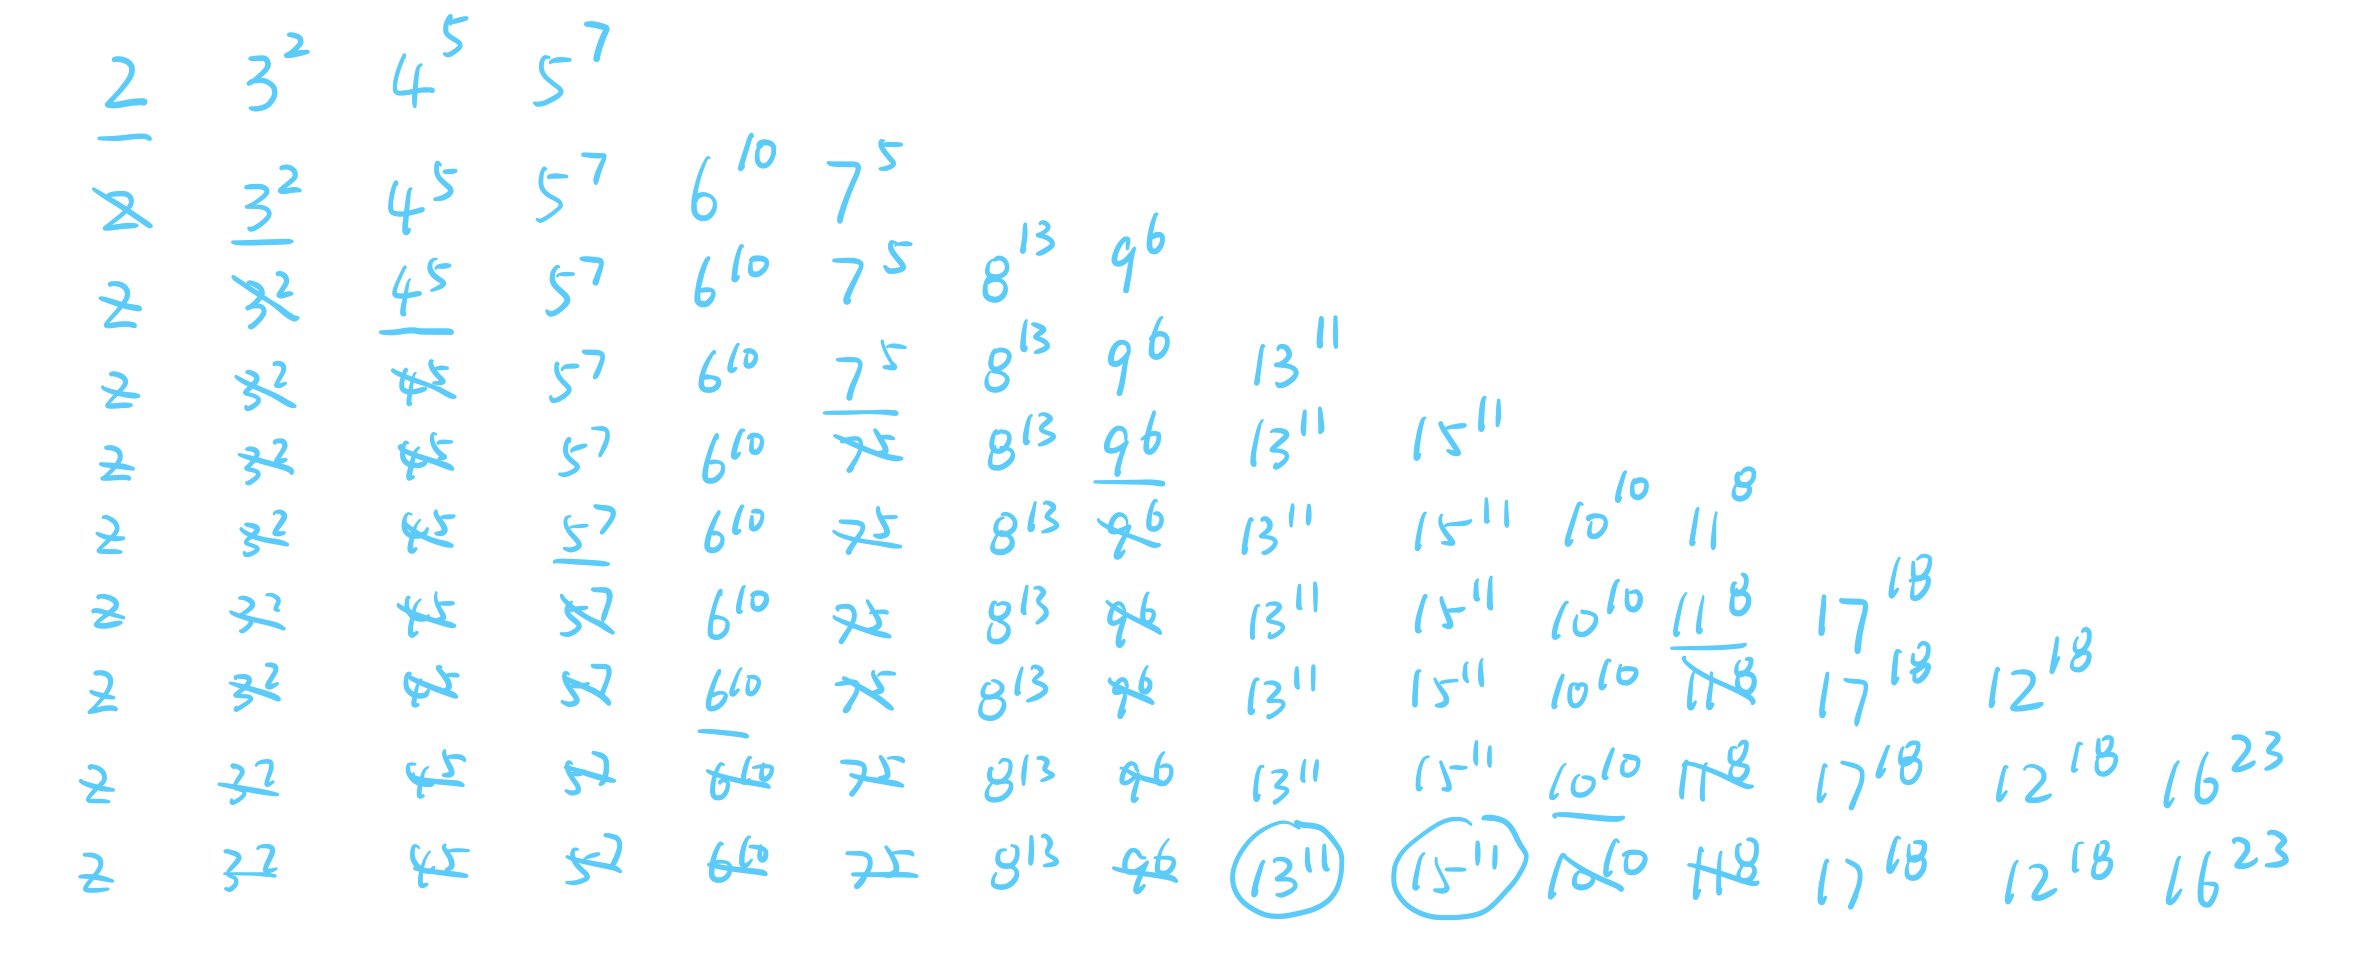 2 3² 4⁵ 5⁷
2 3² 4⁵ 5⁷ 6¹⁰ 7⁵
2 3² 4⁵ 5⁷ 6¹⁰ 7⁵ 8¹³ 9⁶
2 3² 4⁵ 5⁷ 6¹⁰ 7⁵ 8¹³ 9⁶ 13¹¹
2 3² 4⁵ 5⁷ 6¹⁰ 7⁵ 8¹³ 9⁶ 13¹¹ 15¹¹
2 3² 4⁵ 5⁷ 6¹⁰ 7⁵ 8¹³ 9⁶ 13¹¹ 15¹¹ 10¹⁰ 11⁸
2 3² 4⁵ 5⁷ 6¹⁰ 7⁵ 8¹³ 9⁶ 13¹¹ 15¹¹ 10¹⁰ 11⁸ 17¹⁸
2 3² 4⁵ 5⁷ 6¹⁰ 7⁵ 8¹³ 9⁶ 13¹¹ 15¹¹ 10¹⁰ 11⁸ 17¹⁸ 12¹⁸
2 3² 4⁵ 5⁷ 6¹⁰ 7⁵ 8¹³ 9⁶ 13¹¹ 15¹¹ 10¹⁰ 11⁸ 17¹⁸ 12¹⁸ 16²³
2 3² 4⁵ 5⁷ 6¹⁰ 7⁵ 8¹³ 9⁶ 13¹¹ 15¹¹ 10¹⁰ 11⁸ 17¹⁸ 12¹⁸ 16²³